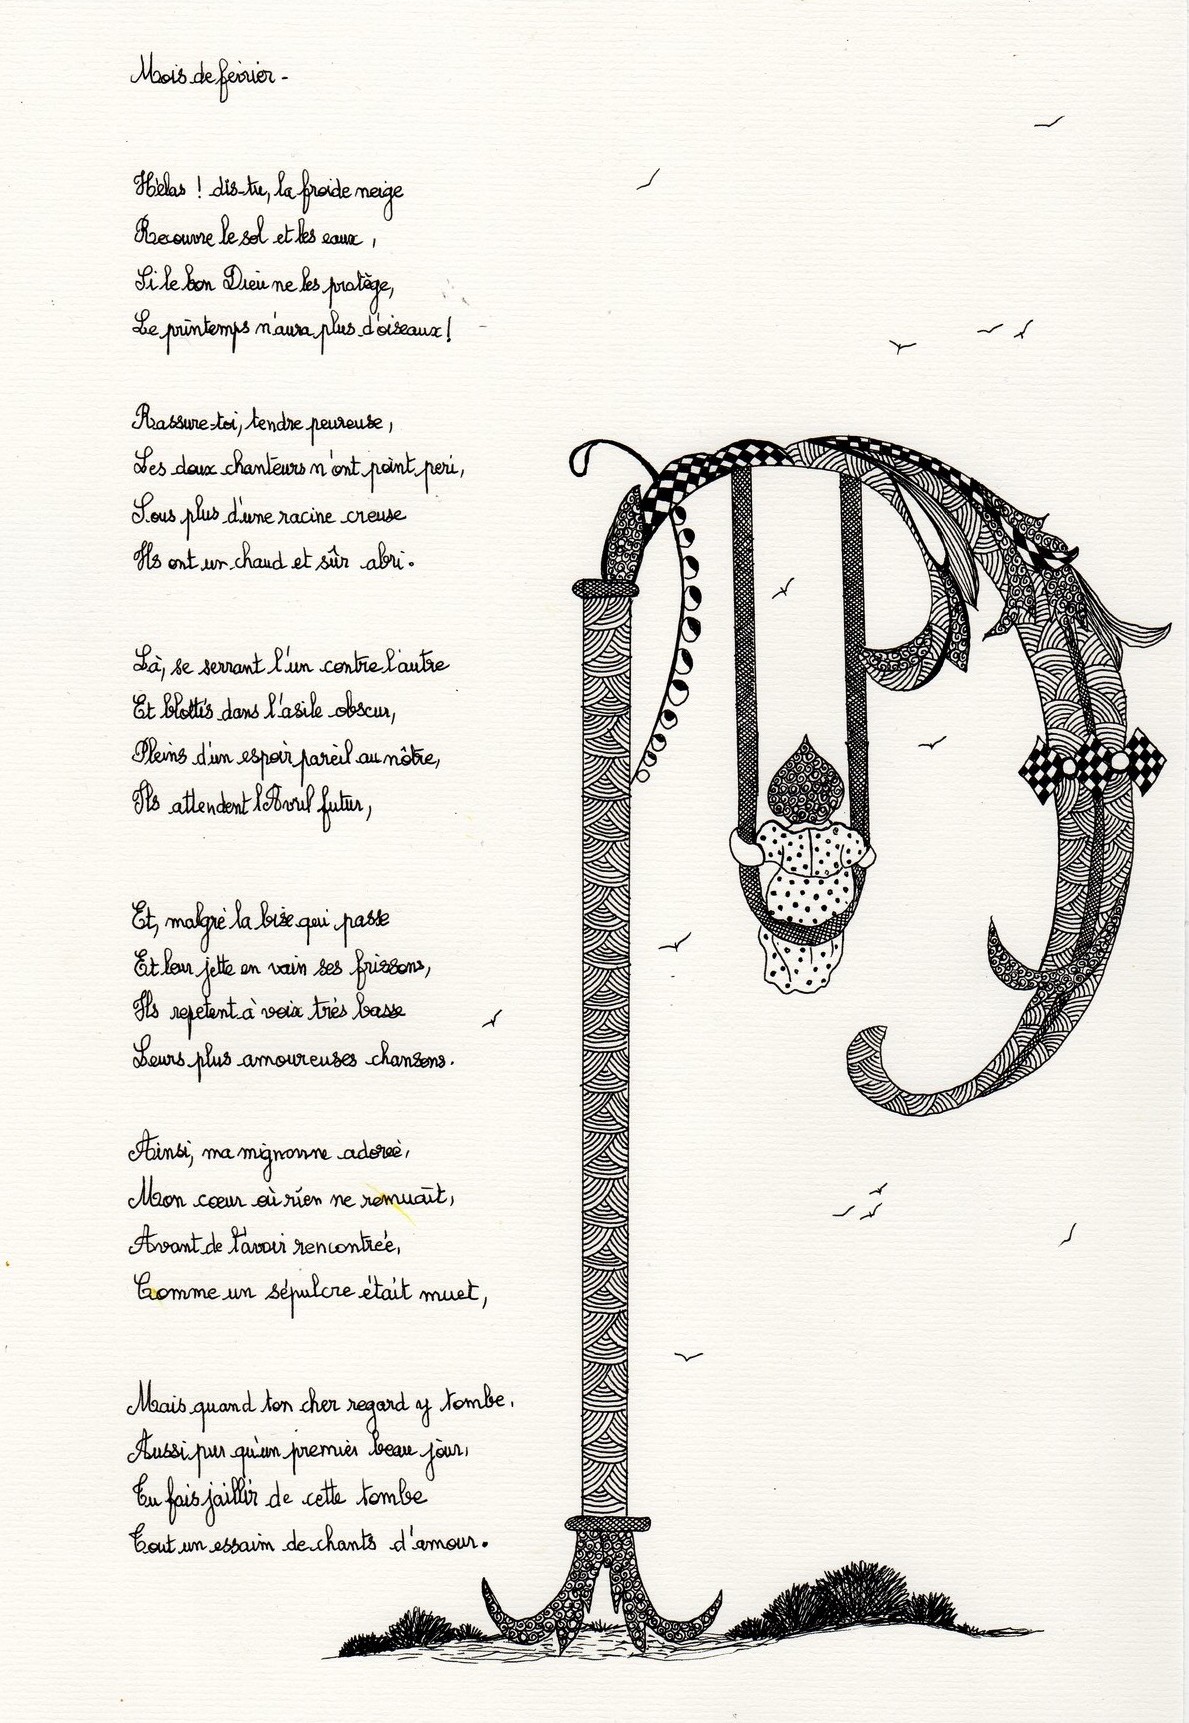 Mois de février -
Hélas ! dis-tu, la froide neige
Recouvre le sol et les eaux,
Si le bon Dieu ne les protège,
Le printemps n'aura plus d'oiseaux !
Rassure-toi, tendre peureuse,
Les doux chanteurs n'ont point peri,
Sous plus d'une racine creuse
Ils ont un chaud et sûr abri.
Là, se serrant l'un contre l'autre
Et blottis dans l'asile obscur,
Pleins d'un espoir pareil au nôtre,
Ils attendent l'Avril futur,
Et, malgré la bise qui passe
Et leur jette en vain ses frissons,
Ils repetent à voix très basse
Leurs plus amoureuses chansons.
Ainsi, ma mignonne adorée,
Mon cœur où rien ne remuait,
Avant de t'avoir rencontrée,
Comme un sépulcre était muet,
Mais quand ton cher regard y tombe,
Aussi pur qu'un premier beau jour,
Tu fais jaillir de cette tombe
Tout un essaim de chants d'amour.